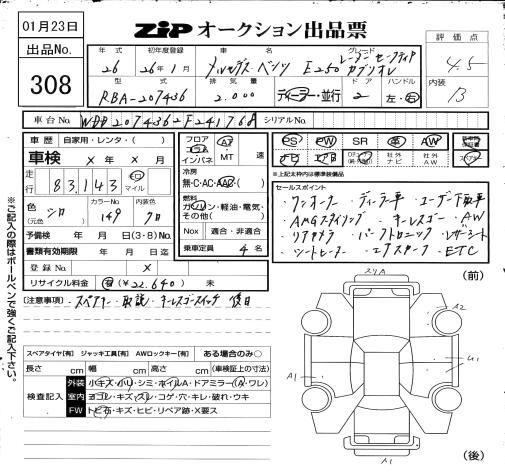 01月23日
ZIP オークション出品票
出品No.
308
評価点
4.5
内装
B
年式 初年度登録 車名 グレード
26 26年1月 メルセデス・ベンツ E250 カブリオレ
型式 排気量 ドア ハンドル
RBA-207436 2.000 ディーラー・並行 2 左・右
車台No. WDD2074362F241768 シリアルNo.
車歴 自家用・レンタ・( )
車検 × 年 × 月
走行 83,143 Km マイル
色 シロ カラーNo. 149 内色 クロ
(元色)
予備検 年 月 日(3・8)No.
書類有効期限 年 月 日迄
登録No. ×
リサイクル料金 有(¥22.640) 未
フロア コラム インパネ AT MT 速
冷房 無・C・AC・AAC( )
燃料 ガソリン・軽油・電気・その他( )
Nox 適合・非適合
乗車定員 4 名
PS PW SR 革 AW
ナビ エアB 社外ナビ 社外AW
※上記太枠内は標準装備品
セールスポイント
・ワンオーナー ・ディーラー車 ・ユーザー下取車
・AMGスタイリング ・キーレスゴー ・AW
・リアカメラ ・パークトロニック ・レザーシート
・シートヒーター ・エアスカーフ ・ETC
(注意事項) スペアキー・取説・キーレスゴースイッチ 後日
※ご記入の際はボールペンで強くご記入下さい。
スペアタイヤ[有] ジャッキ工具[有] AWロックキー[有] ある場合のみ○
長さ cm 幅 cm 高さ cm (車検証上の寸法)
検査記入
外装 小キズ・小凹・シミ・ホイルA・ドアミラー(A・ワレ)
室内 ヨゴレ・キズ・スレ・コゲ・穴・キレ・破れ・ウキ
FW トビ石・キズ・ヒビ・リペア跡・X要ス
(前)
スリA
A2
A1
U1
A1
(後)